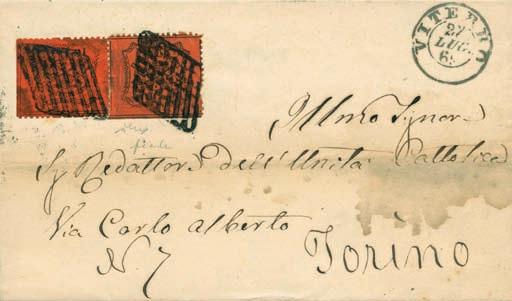 VITERBO
27
LUG.
Illmo Signore
Sig Redattore dell'Unità Cattolica
Via Carlo Alberto
N. 7
Torino